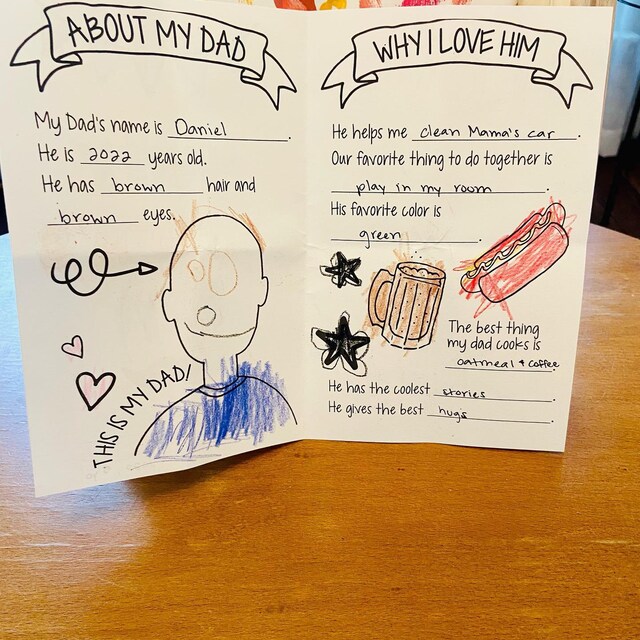 ABOUT MY DAD
My Dad's name is Daniel.
He is 2022 years old.
He has brown hair and
brown eyes.
THIS IS MY DAD!
WHY I LOVE HIM
He helps me clean Mama's car.
Our favorite thing to do together is
play in my room.
His favorite color is
green.
The best thing
my dad cooks is
oatmeal & coffee.
He has the coolest stories.
He gives the best hugs.